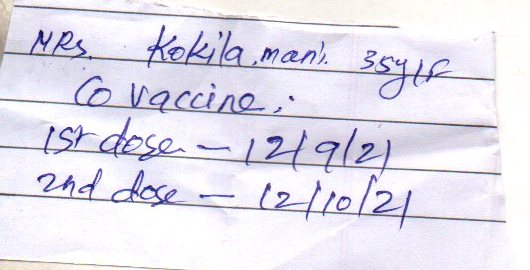 MRs. Kokila.mani. 35y/F
Co vaccine:
1st dose - 12/9/21
2nd dose - 12/10/21